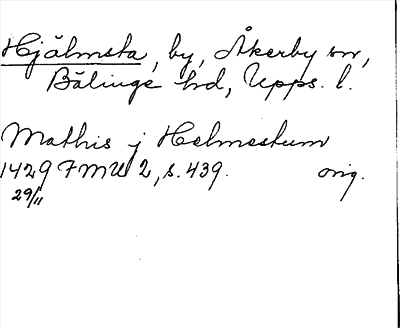 Hjälmsta, by, Åkerby sn,
Bälinge hd, Upps. l.
Mathis j Helmestum
1429 FMU 2, s. 439. orig.
29/11